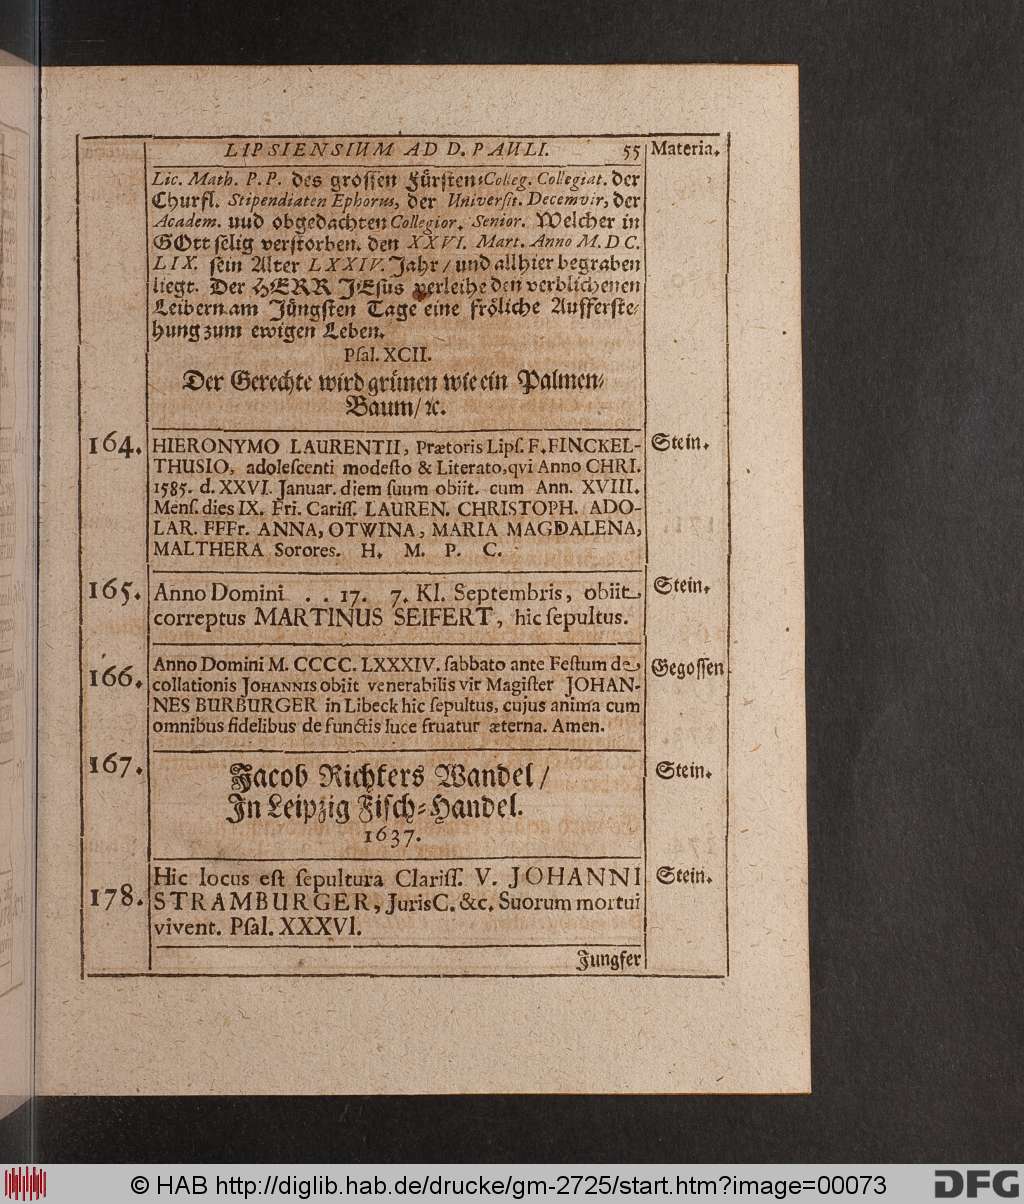 LIPSIENSIUM AD D. PAULI. 55 Materia.
Lic. Math. P. P. des grossen Fürsten-Colleg. Collegiat. der
Churfl. Stipendiaten Ephorus, der Universit. Decemvir, der
Academ. uud obgedachten Collegior. Senior. Welcher in
GOtt selig verstorben. den XXVI. Mart. Anno M. D C.
LIX. sein Alter LXXIV. Jahr / und allhier begraben
liegt. Der HERR JEsus verleihe den verblichenen
Leibern am Jüngsten Tage eine fröliche Aufferste-
hung zum ewigen Leben.
Psal. XCII.
Der Gerechte wird grünen wie ein Palmen-
Baum / ꝛc.
164. HIERONYMO LAURENTII, Prætoris Lipſ. F. FINCKEL- Stein.
THUSIO, adoleſcenti modeſto & Literato, qvi Anno CHRI.
1585. d. XXVI. Januar. diem ſuum obiit. cum Ann. XVIII.
Menſ. dies IX. Fri. Cariſſ. LAUREN. CHRISTOPH. ADO-
LAR. FFFr. ANNA, OTWINA, MARIA MAGDALENA,
MALTHERA Sorores. H. M. P. C.
165. Anno Domini . . 17. 7. Kl. Septembris, obiit Stein.
correptus MARTINUS SEIFERT, hic ſepultus.
166. Anno Domini M. CCCC. LXXXIV. ſabbato ante Feſtum de Gegossen
collationis JOHANNIS obiit venerabilis vir Magiſter JOHAN-
NES BURBURGER in Libeck hic ſepultus, cujus anima cum
omnibus fidelibus de functis luce fruatur æterna. Amen.
167. Jacob Richters Wandel / Stein.
In Leipzig Fisch-Handel.
1637.
178. Hic locus eſt ſepultura Clariſſ. V. JOHANNI Stein.
STRAMBURGER, JurisC. &c. Suorum mortui
vivent. Pſal. XXXVI.
Jungfer
© HAB http://diglib.hab.de/drucke/gm-2725/start.htm?image=00073
DFG